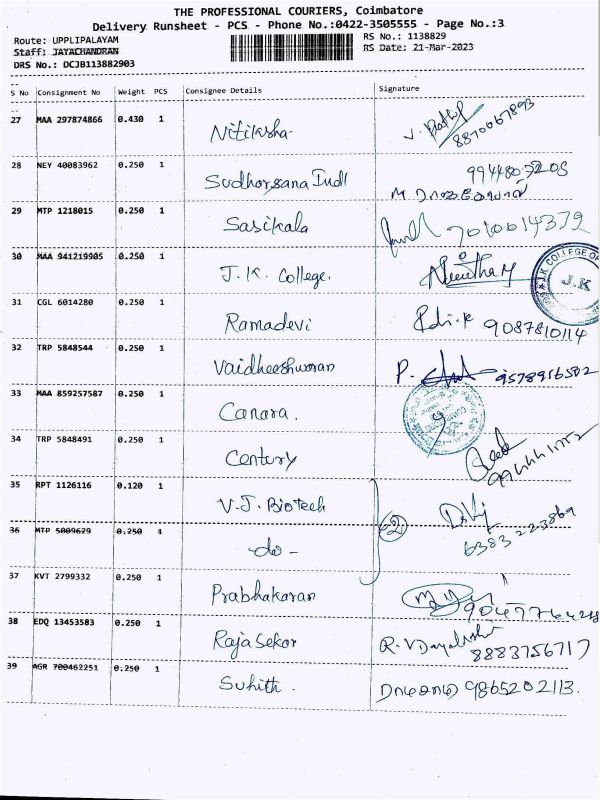 THE PROFESSIONAL COURIERS, Coimbatore
Delivery Runsheet - PCS - Phone No.:0422-3505555 - Page No.:3
Route: UPPLIPALAYAM RS No.: 1138829
Staff: JAYACHANDRAN RS Date: 21-Mar-2023
DRS No.: DCJB113882903
S No Consignment No Weight PCS Consignee Details Signature
27 MAA 297874866 0.430 1 Nitiksha 8870067893
28 NEY 40083962 0.250 1 Sudharsana Indl
29 MTP 1218015 0.250 1 Sasikala 7010014372
30 MAA 941219905 0.250 1 J.K. College. J.K COLLEGE OF J.K
31 CGL 6014280 0.250 1 Ramadevi 9087810114
32 TRP 5848544 0.250 1 Vaidheeshwaran P. 9578916502
33 MAA 859257587 0.250 1 Canara.
34 TRP 5848491 0.250 1 Century
35 RPT 1126116 0.120 1 V.J. Biotech
36 MTP 5009629 0.250 1 -do- 2 6383 223869
37 KVT 2799332 0.250 1 Prabhakaran
38 EDQ 13453583 0.250 1 Raja Sekar 8883756717
39 AGR 700462251 0.250 1 Suhith. 9865202113.